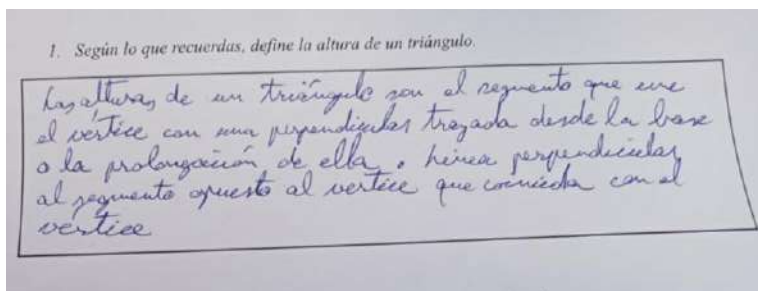 1. Según lo que recuerdas, define la altura de un triángulo.
Las alturas de un triángulo son el segmento que une
el vértice con una perpendicular trazada desde la base
o la prolongación de ella. Línea perpendicular
al segmento opuesto al vertice que coincida con el
vertice